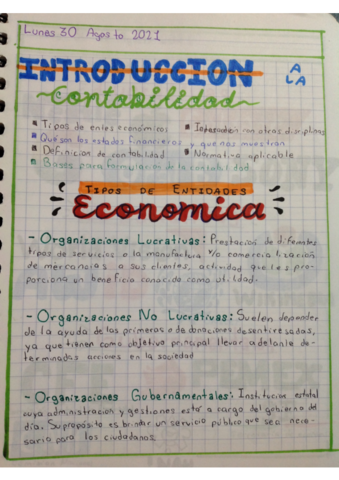 Lunes 30 Agosto 2021
INTRODUCCION A LA
Contabilidad
Tipos de entes económicos
Interacción con otras disciplinas
Que son los estados financieros y que nos muestran
Definicion de contabilidad
Normativa aplicable
Bases para formulación de la contabilidad
TIPOS DE ENTIDADES
Economica
- Organizaciones Lucrativas: Prestación de diferentes
tipos de servicios o la manufactura Y/o comercialización
de mercancias a sus clientes, actividad que les pro-
porciona un beneficio conocido como utilidad.
- Organizaciones No Lucrativas: Suelen depender
de la ayuda de las primeras o de donaciones desentiresadas,
ya que tienen como objetivo principal llevar adelante de-
terminadas acciones en la sociedad
- Organizaciones Gubernamentales: Institucion estatal
cuya administracion y gestiones está a cargo del gobierno del
día. Su proposito es brindar un servicio público que sea nece-
sario para los ciudadanos